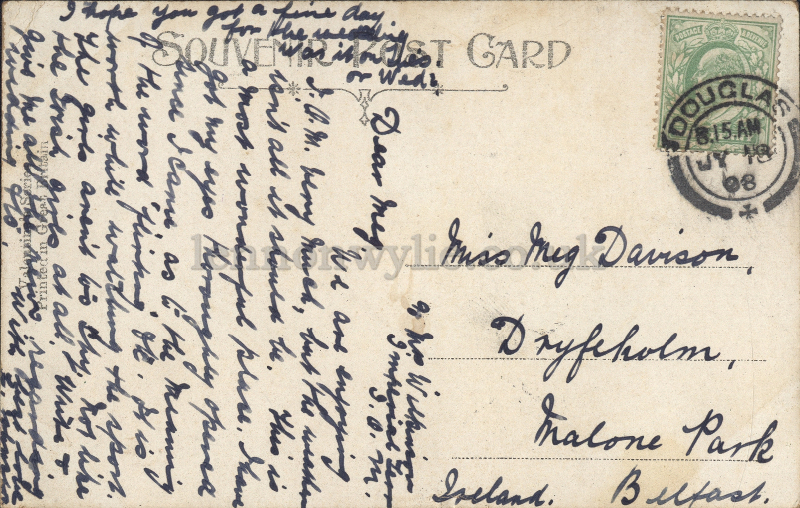 SOUVENIR POST CARD
DOUGLAS
8.15 AM
JY 18
08
POSTAGE
Miss Meg Davison,
Dryfeholm,
Malone Park
Ireland. Belfast.
c/o Mrs Wilkinson
Imperial
I.O.M.
Dear Meg
We are enjoying
I.O.M. very much, but the weather
isn't all it should be. This is
a most wonderful place. I have
got my eyes thoroughly opened
since I came as to the meaning
of the word "flirting" etc. It is
worth while watching the sport.
The girls aren't a spy. not like
the Irish girls at all. Write &
give me all news regarding
wedding etc. With
I hope you got a fine day
for the wedding
Was it on Tues.
or Wed?
Valentine's Series
Printed in Great Britain
lennonwylie.co.uk